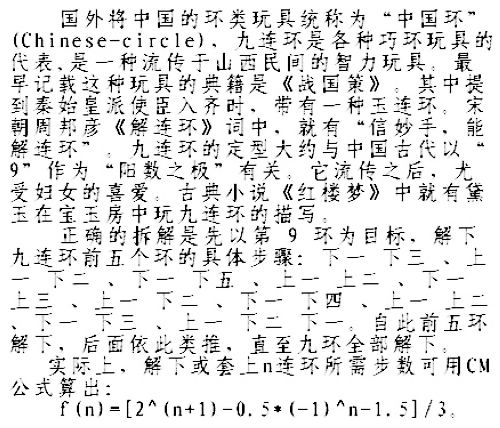 国外将中国的环类玩具统称为“中国环”
(Chinese-circle)，九连环是各种巧环玩具的
代表、是一种流传于山西民间的智力玩具。最
早记载这种玩具的典籍是《战国策》。其中提
到秦始皇派使臣入齐时，带有一种玉连环。宋
朝周邦彦《解连环》词中，就有“信妙手，能
解连环”。九连环的定型大约与中国古代以“
9”作为“阳数之极”有关。它流传之后，尤
受妇女的喜爱。古典小说《红楼梦》中就有黛
玉在宝玉房中玩九连环的描写。
正确的拆解是先以第 9 环为目标，解下
九连环前五个环的具体步骤：下一下三、上
一下二、下一下五、上一上二、下一
上三、上一下二、下一下四、上一上二
、下一下三、上一下二下一。自此前五环
解下，后面依此类推，直至九环全部解下。
实际上，解下或套上n连环所需步数可用CM
公式算出：
f(n)=[2^(n+1)-0.5*(-1)^n-1.5]/3。